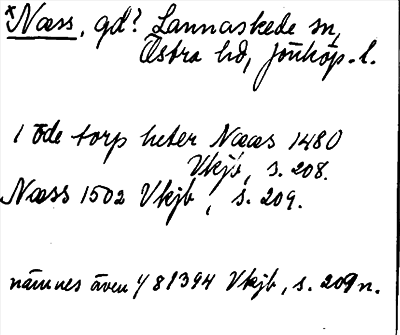 *Næss, gd? Lannaskede sn,
Östra hd, Jönköp. l.
1 öde torp heter Nææs 1480
Vkjb, s. 208.
Næss 1502 Vkjb, s. 209.
nämnes även 1394 Vkjb, s. 209 n.